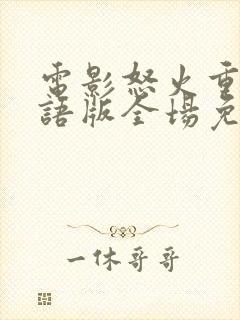 電影怒火重
語版全場免
一休哥哥